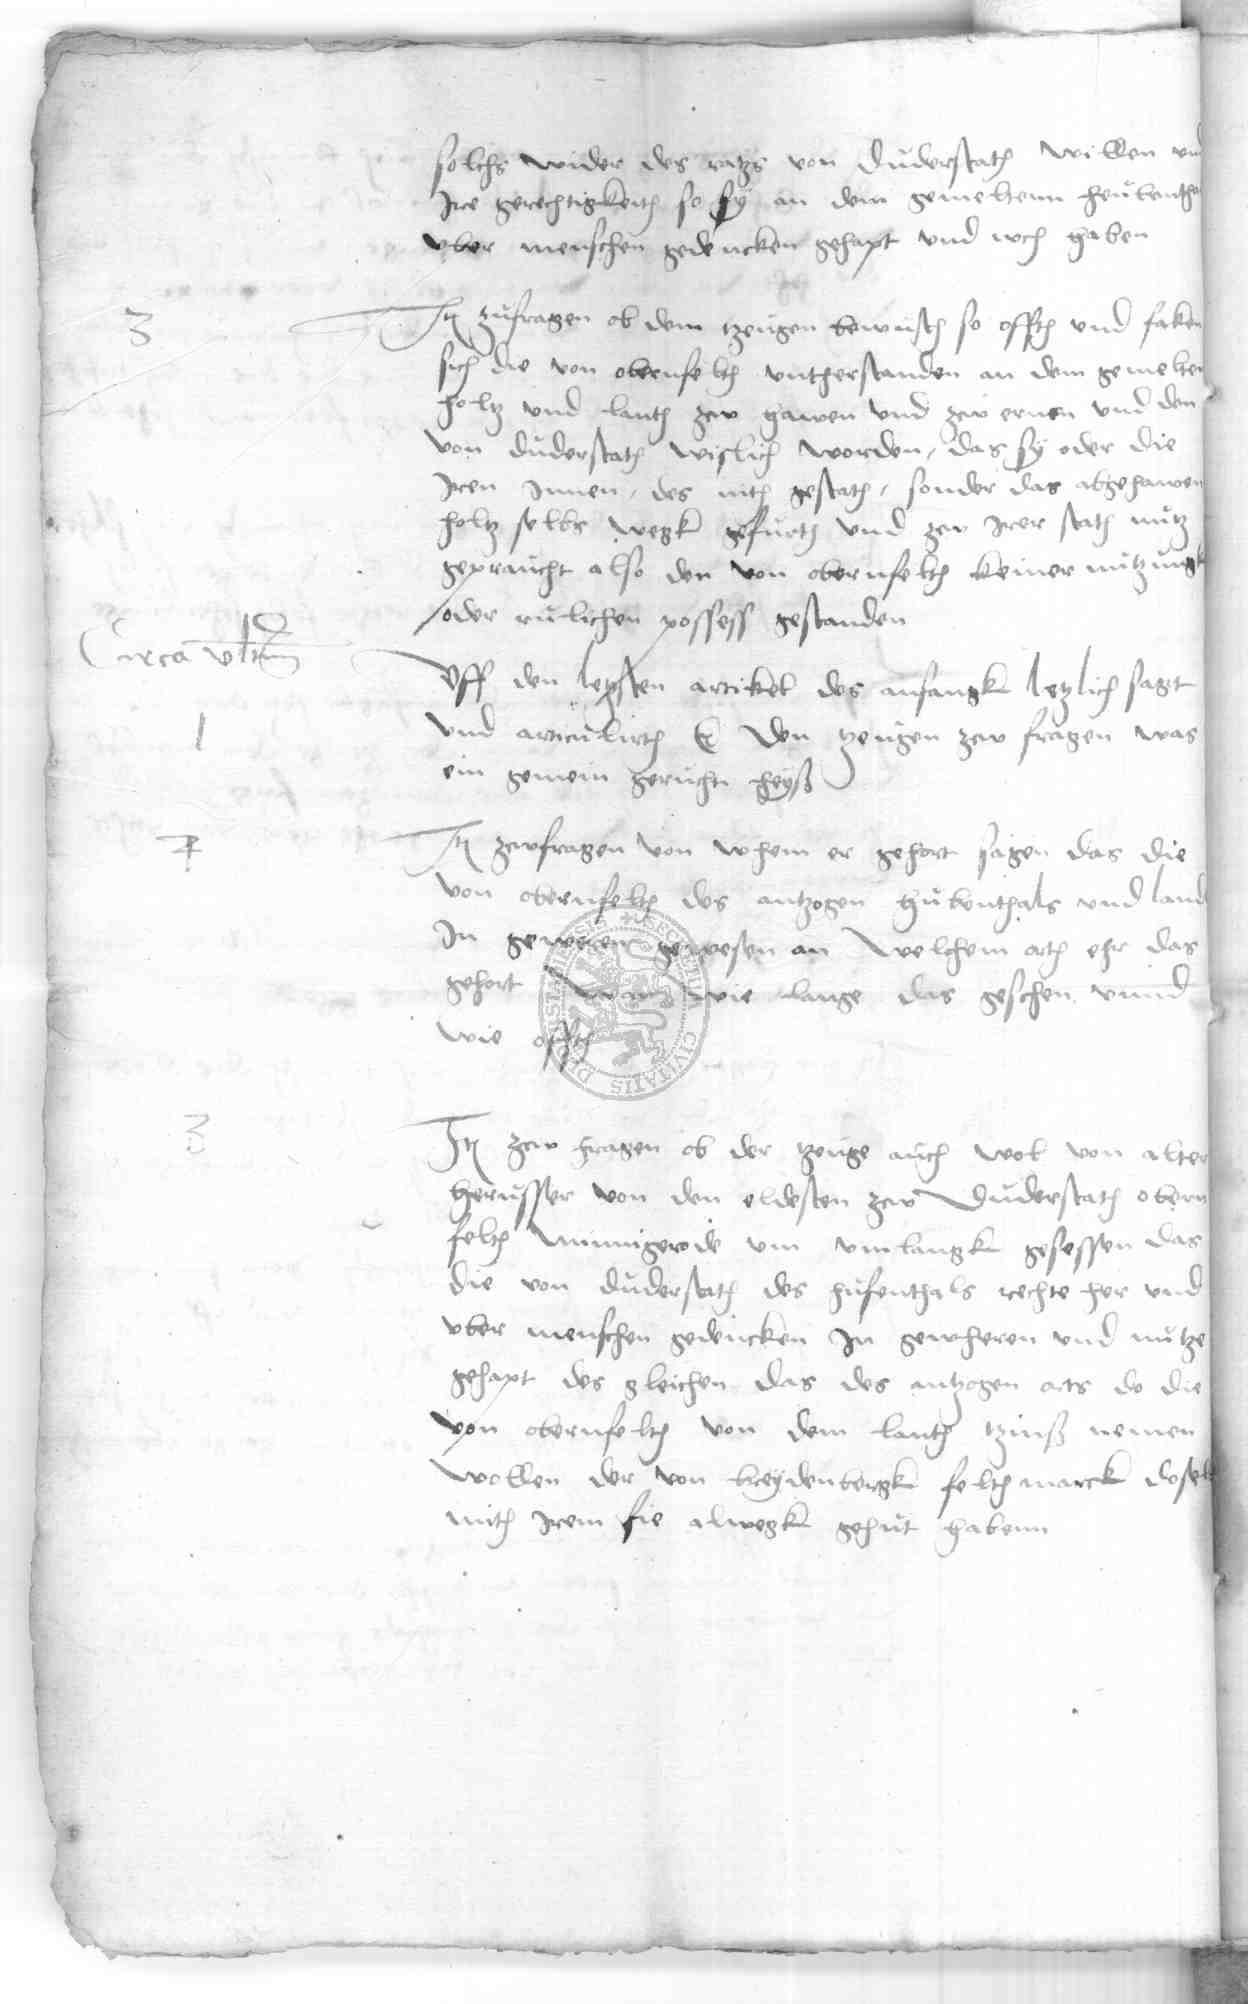 solchs wider des ratzs von duderstath willen vnd
Ire gerechtigkeith so sy an dem gemelten heubentha
vber menschen gedencken gehapt vnd noch haben
3
Jt zufragen ob dem tzeugen bewusth so offth vnd faken
sich die von obernfelth vntherstanden an dem gemelten
holtz vnd lanth zcw hawen vnd zcw ernen vnd den
von duderstath wislich worden, das sy oder die
Iren Innen, des nith gestath, sonder das abgehawen
holtz selbs wegk gefurth vnd zcw Irer stath nutz
gepraucht also den von obernfelth keiner nutzungk
oder rulichen possess gestanden
Circa vltimum
Vff den letzsten artikel des anfangk letzlich sagt
1
vnd articulirth &c den tzeugen zcw fragen was
ein gemein gerucht heyß
2
Jt zcwfragen von whem er gehort sagen das die
von obernfelth des antzogen hubenthals vnd land
In geweren gewesen an welchem orth ehr das
gehort wan wie lange das geschen vnnd
wie offth
3
Jt zcw fragen ob der tzeuge auch wol von alter
herusser von den eldesten zcw duderstath obern
felth Minnigerode vm vmlangk gesessen das
die von duderstath des hufenthals rechte her vnd
vber menschen gedencken In gewheren vnd nutze
gehapt des gleichen das des antzogen orts do die
von obernfelth von dem lanth tzinß nemen
wollen der von breydenbergk felth marck doselb
mith Irem fie alwegk gehut habenn
SECRETUM CIVITATIS